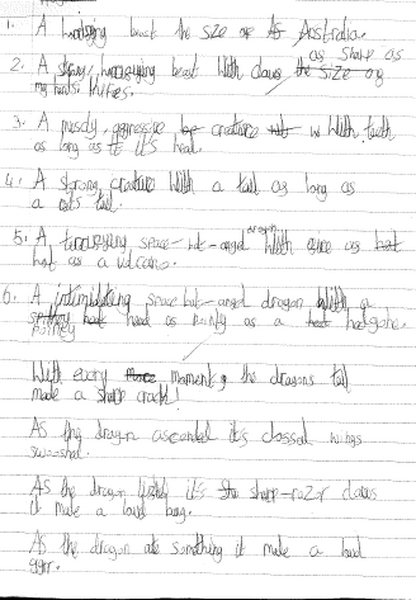 1. A beast the size of Australia.
2. A strong, terrifying beast with claws the size of as sharp as
my hands. knifes.
3. A moody, aggressive creature with teeth
as long as it's head.
4. A strong, creature with a tail as long as
a cat's tail.
5. A terrifying space-bat-angel dragon with eyes as hot
hot as a volcano.
6. A intimidating space bat-angel dragon with a
head as pointy as a
pointey
With every moment, the dragons tail
made a sharp crack!
As the dragon ascended it's clossal wings
swooshed.
As the dragon it's the sharp-razor claws
it make a loud bang.
As the dragon ate something it make a loud